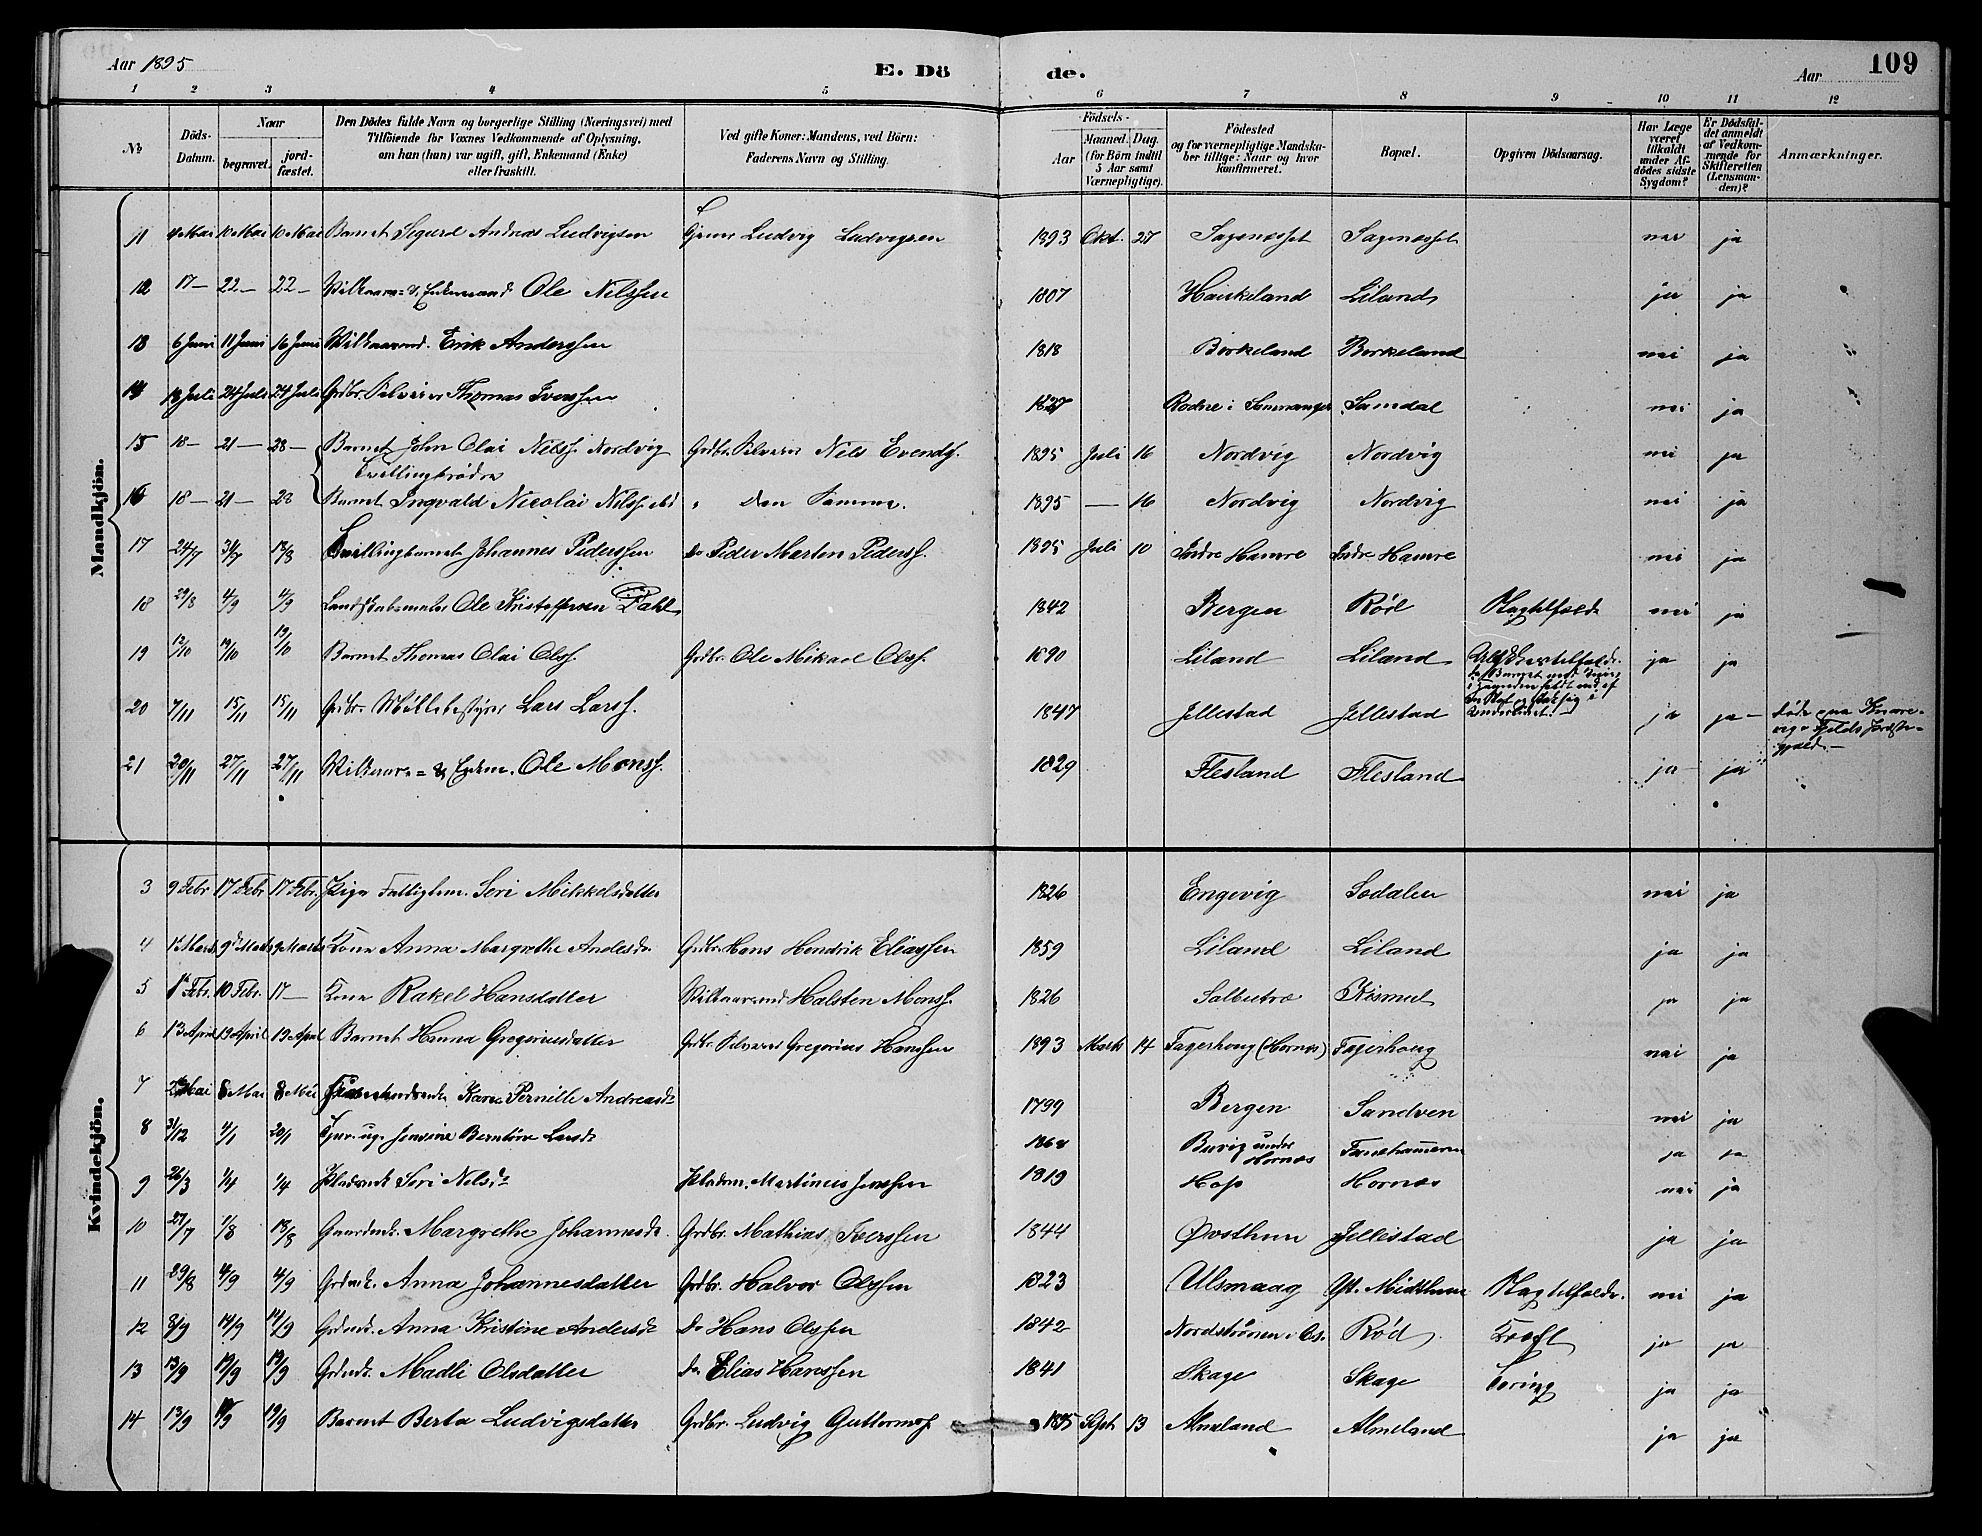 Aar 1895
E. Dö
de.
Aar
109
1 2 3 4 5 6 7 8 9 10 11 12
№
Döds-Datum.
Naar
begravet.
jord-fæstet.
Den Dödes fulde Navn og borgerlige Stilling (Næringsvei) med
Tilföiende for Voxnes Vedkommende af Oplysning,
om han (hun) var ugift, gift, Enkemand (Enke)
eller fraskilt.
Ved gifte Koner: Mandens, ved Börn:
Faderens Navn og Stilling.
Födsels-
Aar
Maaned. Dag.
(for Börn indtil
5 Aar samt
Værnepligtige).
Födested
og for værnepligtige Mandska-
ber tillige: Naar og hvor
konfirmeret.
Bopæl.
Opgiven Dödsaarsag.
Har Læge
været
tilkaldt
under Af-
dödes sidste
Sygdom?
Er Dödsfal-
det anmeldt
af Vedkom-
mende for
Skifteretten
(Lensman-
den)?
Anmærkninger.
Mandkjön.
11 Mai 10 Mai 10 Mai Barnet Sigurd Andreas Ludvigsen Ludvig Ludvigsen 1893 Okt. 27 Sagenesset Sagenesset nei ja
12 17 — 22 — 22 — Ole Nilssen 1807 Haukeland Liland ja ja
13 6 Juni 11 Juni 16 Juni Vilkaarmd. Erik Anderssen 1818 Birkeland Birkeland nei ja
14 18 Juli 24 Juli 24 Juli Grdbr. Selveier Thomas Iverssen 1827 Rodne i Sammanger Samdal nei ja
15 18 — 21 — 28 — Barnet John Olai Nilss. Nordvig Grdbr. Selveier Nils 1895 Juli 16 Nordvig Nordvig nei ja
Tvillingbrødre
16 18 — 21 — 28 Barnet Ingvald Nicolai Nilss. den Samme. 1895 — 16 Nordvig Nordvig nei ja
17 24/7 31/7 18/8 Tvillingbarnet Johannes Pederssen Do Peder Marten Peders. 1895 Juli 10 Indre Hamre Indre Hamre nei ja
18 29/8 4/9 4/9 Ole Kristofferssen Dahl 1842 Bergen Röd Slagtilfælde nei ja
19 12/10 19/10 19/10 Barnet Thomas Olai Olss. Grdbr. Ole Mikael Olss. 1890 Liland Liland ja ja
20 7/11 15/11 15/11 Grdbr. Lars Larss. 1847 Jellestad Jellestad ja ja —
21 20/11 27/11 27/11 Vilkaars= & Enkem. Ole Monss. 1829 Flesland Flesland ja ja
Kvindekjön.
3 9 Febr 17 Febr 17 Febr. Pige Fattiglem. Seri Mikkelsdatter 1826 Engevig Sædalen nei ja
4 Marts 9de Marts 9 Marts Kone Anna Margrethe Andersdr Grdbr. Hans Hendrik Eliassen 1859 Liland Liland ja ja
5 1 Febr. 10 Febr. 17 — Kone Rakel Hansdatter Vilkaarsmd Halsten Monss. 1826 Salbutræ Kismul ja ja
6 13 April 19 April 19 April Barnet Hanna Gregoriusdatter Grdbr. Selveier Gregorius Hanssen 1893 Marts 14 Fagerhoug (Hornæs) Fagerhoug nei ja
7 Mai 8 Mai 8 Mai Karen Pernille Andreasdr 1799 Bergen Sandven nei ja
8 31/12 4/1 20/1 Larsdr Buvig under Hornæs Fanehammeren ja ja
9 26/3 1/4 1/4 Seri Nilsdr Martinus Jenssen 1819 Hop Hornæs nei ja
10 27/7 1/8 18/8 Margrethe Johannesdr. Grdbr. Mathias Iverssen 1844 Øvsthun Jellestad ja ja
11 29/8 4/9 4/9 Anna Johannesdatter Grdbr. Halvor Olssen 1823 Ulsmaag Yt. Midthun Slagtilfælde. nei ja
12 8/9 14/9 14/9 Anna Kristine Andersdr Do Hans Olssen 1842 Nordstrønen i Os. Rød Kræft ja ja
13 13/9 19/9 19/9 Madli Olsdatter Do. Elias Hanssen 1841 Skage Skage Tæring ja ja
14 13/9 19/9 19/9 Barnet Berta Ludvigsdatter Grdbr. Ludvig Guttormss. 1895 Sept 13 Almeland Almeland ja ja